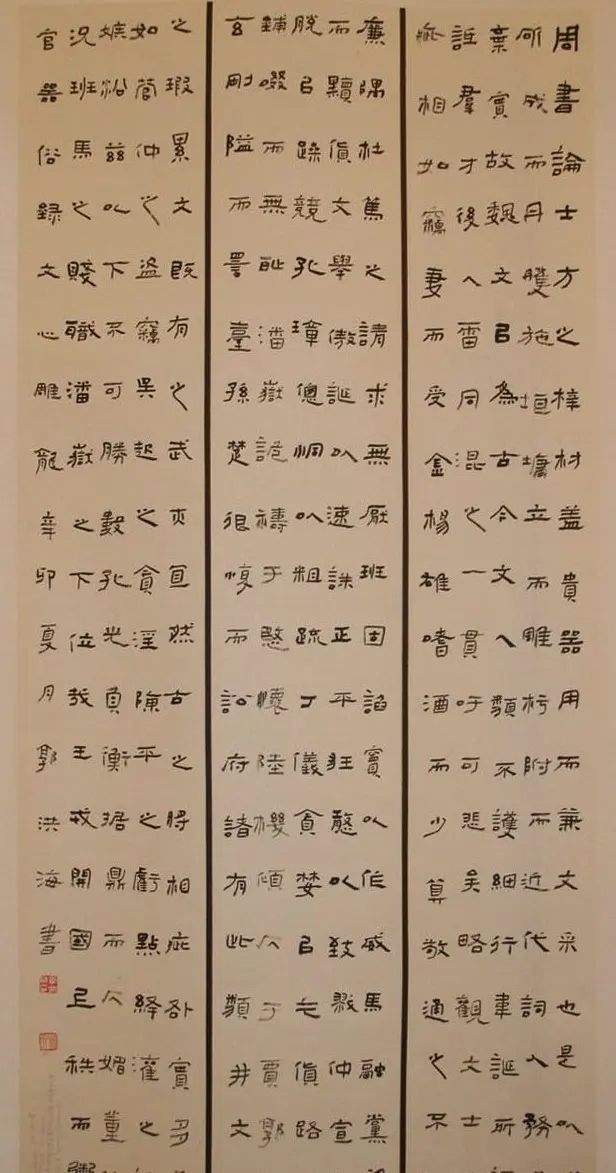 周書論士方之梓材蓋貴器用而兼文采也是以
斫成而丹雘施垣墉立而雕杇附而近代詞人務
棄實故魏文以為古今文人類不護細行韋誕所
詆群才後人雷同混之一貫吁可悲矣略觀文士
疵相如竊妻而受金楊雄嗜酒而少算敬通之不
廉隅杜篤之請求無厭班固諂竇以作威馬融黨
而黷貨文舉傲誕以速誅正平狂憨以致戮仲宣
脫以躁競孔璋傯恫以粗疏丁儀貪婪以乞貨路
餔啜而無恥潘嶽詭禱于愍懷陸機傾仄于賈郭
玄剛隘而詈臺孫楚狠愎而訟府諸有此類并文
之瑕累文既有之武亦宜然古之將相疵咎實多
如管仲之盜竊吳起之貪淫陳平之虧點絳灌之
嫉沿茲以下不可勝數孔光負衡據鼎而仄媚董
況班馬之賤職潘嶽之下位哉王戎開國上秩而鬻
官囂俗錄文心雕龍辛卯夏月郭洪海書